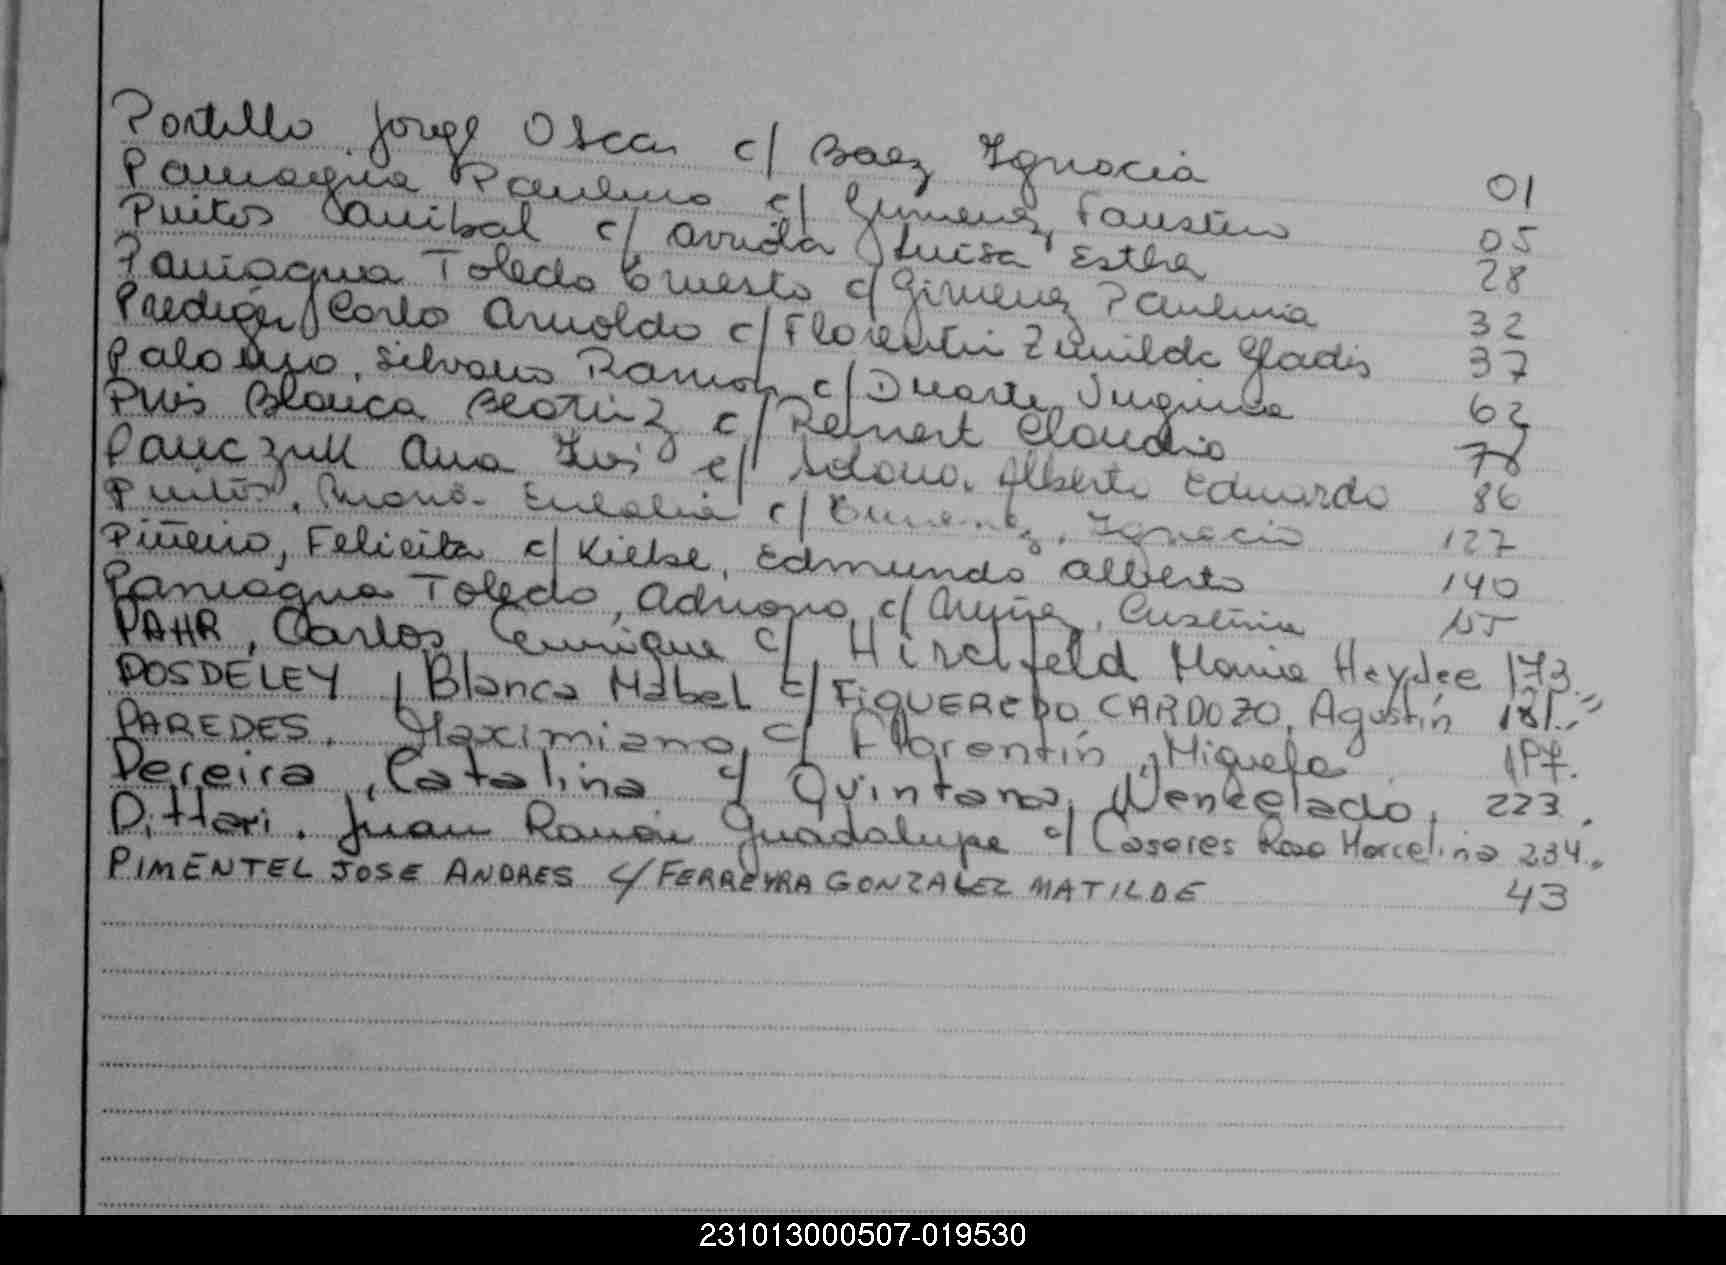 Portillo Jorge Oscar c/ Baez Ignacia 01
Paniagua Paulino c/ Gimenez Faustino 05
Anibal c/ Arruda Luisa Esther 28
Paniagua Toledo Ernesto c/ Gimenez Paulina 32
Prediger Carlo Arnoldo c/ Florentin Zunilda Gladis 37
Palomino, Silvano Ramon c/ Duarte Virginia 62
Blanca Beatriz c/ Reinert Claudio 78
Ana c/ Solano, Alberto Eduardo 86
Eulalia c/ Ignacio 127
Piñeiro, Felicita c/ Kielse, Edmundo Alberto 140
Paniagua Toledo, Adriano, c/ 155
PAHR, Carlos Enrique c/ Hirchfeld Maria Heydee 173.
POSDELEY, Blanca Mabel c/ FIGUEREDO CARDOZO, Agustín 181.
PAREDES, Maximiano, c/ Florentín, Miguela 197.
Pereira, Catalina c/ Quintana, Wencelado, 223.
Pittari. Juan Ramón Guadalupe c/ Caseres Rosa Marcelina 234.
PIMENTEL JOSE ANDRES c/ FERREYRA GONZALEZ MATILDE 43
231013000507-019530